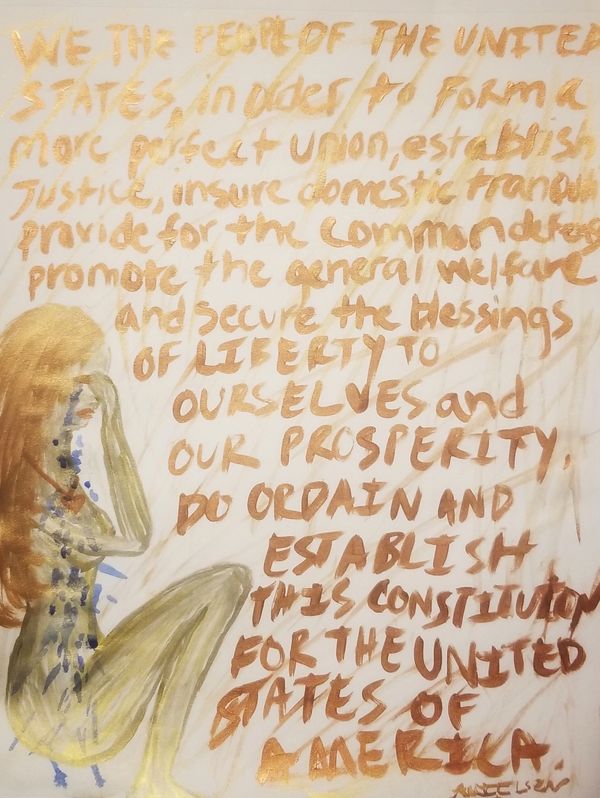 WE THE PEOPLE OF THE UNITED
STATES, in order to Form a
more perfect union, establish
Justice, insure domestic
provide for the common defense
promote the general welfare
and secure the blessings
OF LIBERTY TO
OURSELVES and
OUR PROSPERITY,
DO ORDAIN AND
ESTABLISH
THIS CONSTITUTION
FOR THE UNITED
STATES OF
AMERICA.